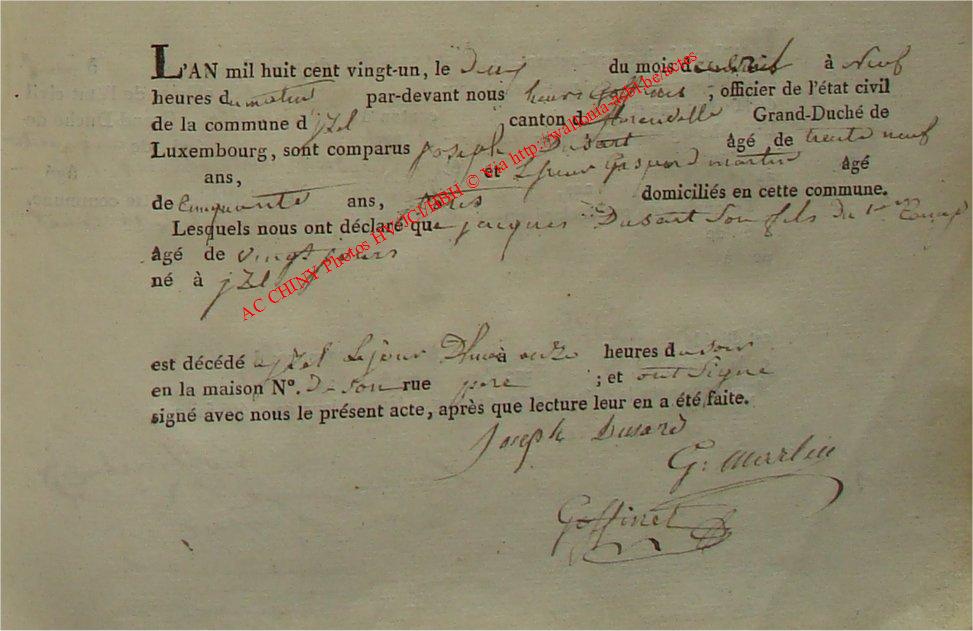 L'AN mil huit cent vingt-un, le deux du mois d'avril à neuf
heures du matin par-devant nous , officier de l'état civil
de la commune d jzel canton d florenville Grand-Duché de
Luxembourg, sont comparus joseph Dusart Agé de trente neuf
ans, et gaspard martin Agé
de Cinquante ans, domiciliés en cette commune.
Lesquels nous ont déclaré que jacques Dusart son fils du 1er
Agé de vingt jours
né à jzel
est décédé a jzel le jour D'hier à onze heures du soir
en la maison N°. De son rue pere ; et ont signé
signé avec nous le présent acte, après que lecture leur en a été faite.
Joseph Dusard
G: martin
Goffinet
AC CHINY Photos HV-JCI/BBH © Via http://wallonia-asbl.be/actes